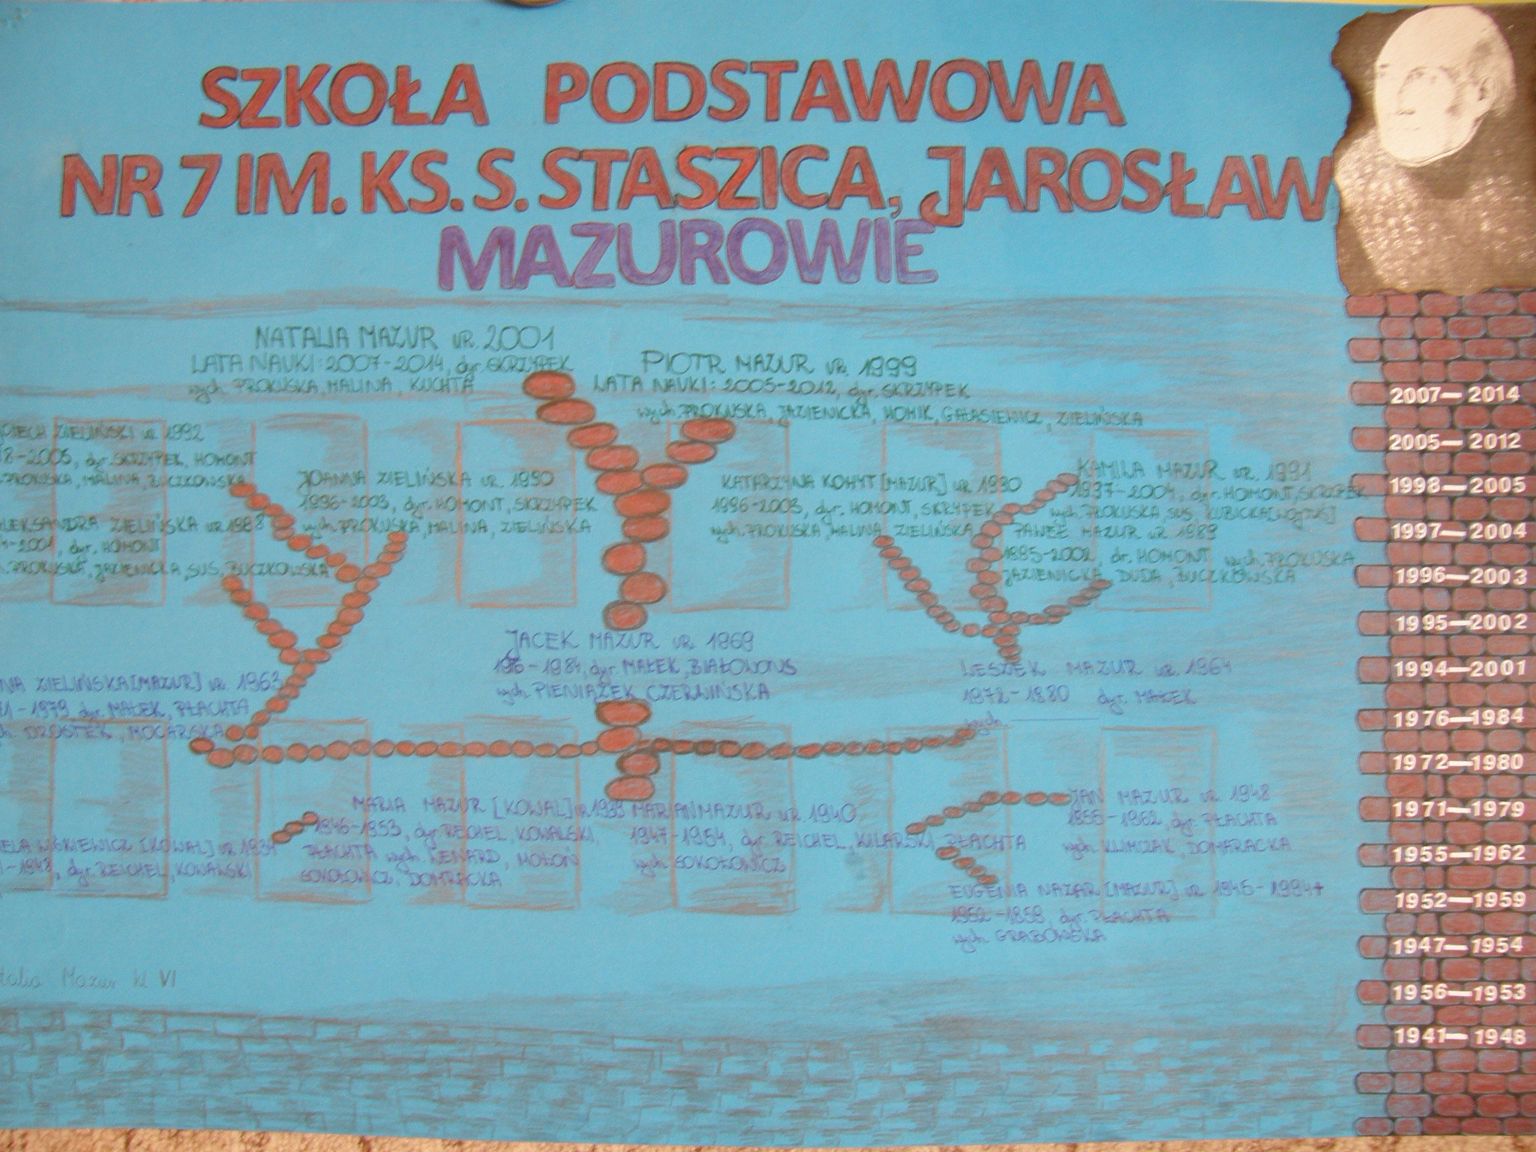 SZKOŁA PODSTAWOWA
NR 7 IM. KS. S. STASZICA, JAROSŁAW
MAZUROWIE
NATALIA MAZUR UR. 2001
LATA NAUKI: 2007-2014, dyr. SKRZYPEK
wych. PROKUSKA, MALINA, KUCHTA
PIOTR MAZUR UR. 1999
LATA NAUKI: 2005-2012, dyr. SKRZYPEK
wych. PROKUSKA, JAZIENICKA, HOMIK, GAŁASIEWICZ, ZIELIŃSKA
ZIELIŃSKI UR. 1992
8-2005, dyr. SKRZYPEK, HOMONT
PROKUSKA, MALINA, BUCZKOWSKA
JOANNA ZIELIŃSKA UR. 1990
1996-2003, dyr. HOMONT, SKRZYPEK
wych. PROKUSKA, MALINA, ZIELIŃSKA
LEKSANDRA ZIELIŃSKA UR 1988
4-2001, dyr. HOMONT
PROKUSKA, JAZIENICKA, SUS, BUCZKOWSKA
KATARZYNA KOHYT [MAZUR] UR. 1990
1996-2003, dyr. HOMONT, SKRZYPEK
wych. PROKUSKA, MALINA, ZIELIŃSKA
KAMILA MAZUR UR. 1991
1997-2004, dyr. HOMONT, SKRZYPEK
wych. PROKUSKA, SUS, KUBICKA [WOJTUŚ]
PAWEŁ MAZUR UR. 1989
1995-2002, dr. HOMONT, wych. PROKUSKA
JAZIENICKA, DUDA, BUCZKOWSKA
NA ZIELIŃSKA [MAZUR] UR. 1963
1-1979, dyr. MAŁEK, PŁACHTA
DROSTEK, MOCARSKA
JACEK MAZUR UR. 1969
1976-1984, dyr. MAŁEK, BIAŁOWONS
wych. PIENIĄŻEK CZERWIŃSKA
LESZEK MAZUR UR. 1964
1972-1980 dyr. MAŁEK
wych.
MARIA MAZUR [KOWAL] UR 1939
1946-1953, dyr. REICHEL, KOWALSKI,
PŁACHTA wych. LENARD, MOŁOŃ
SOKOŁOWICZ, DOMRACKA
MARIAN MAZUR UR 1940
1947-1954, dyr. REICHEL, KILARSKI PŁACHTA
wych. SOKOŁOWICZ
JAN MAZUR UR. 1948
1955-1962, dyr. PŁACHTA
wych. KLIMCZAK, DOMARACKA
[KOWAL] UR 1934
-1948, dyr. REICHEL, KOWALSKI
EUGENIA NAZAR [MAZUR] UR 1945-1994+
1952-1959, dyr. PŁACHTA
wych. GRABOWSKA
talia Mazur kl VI
2007—2014
2005—2012
1998—2005
1997—2004
1996—2003
1995—2002
1994—2001
1976—1984
1972—1980
1971—1979
1955—1962
1952—1959
1947—1954
1956—1953
1941—1948